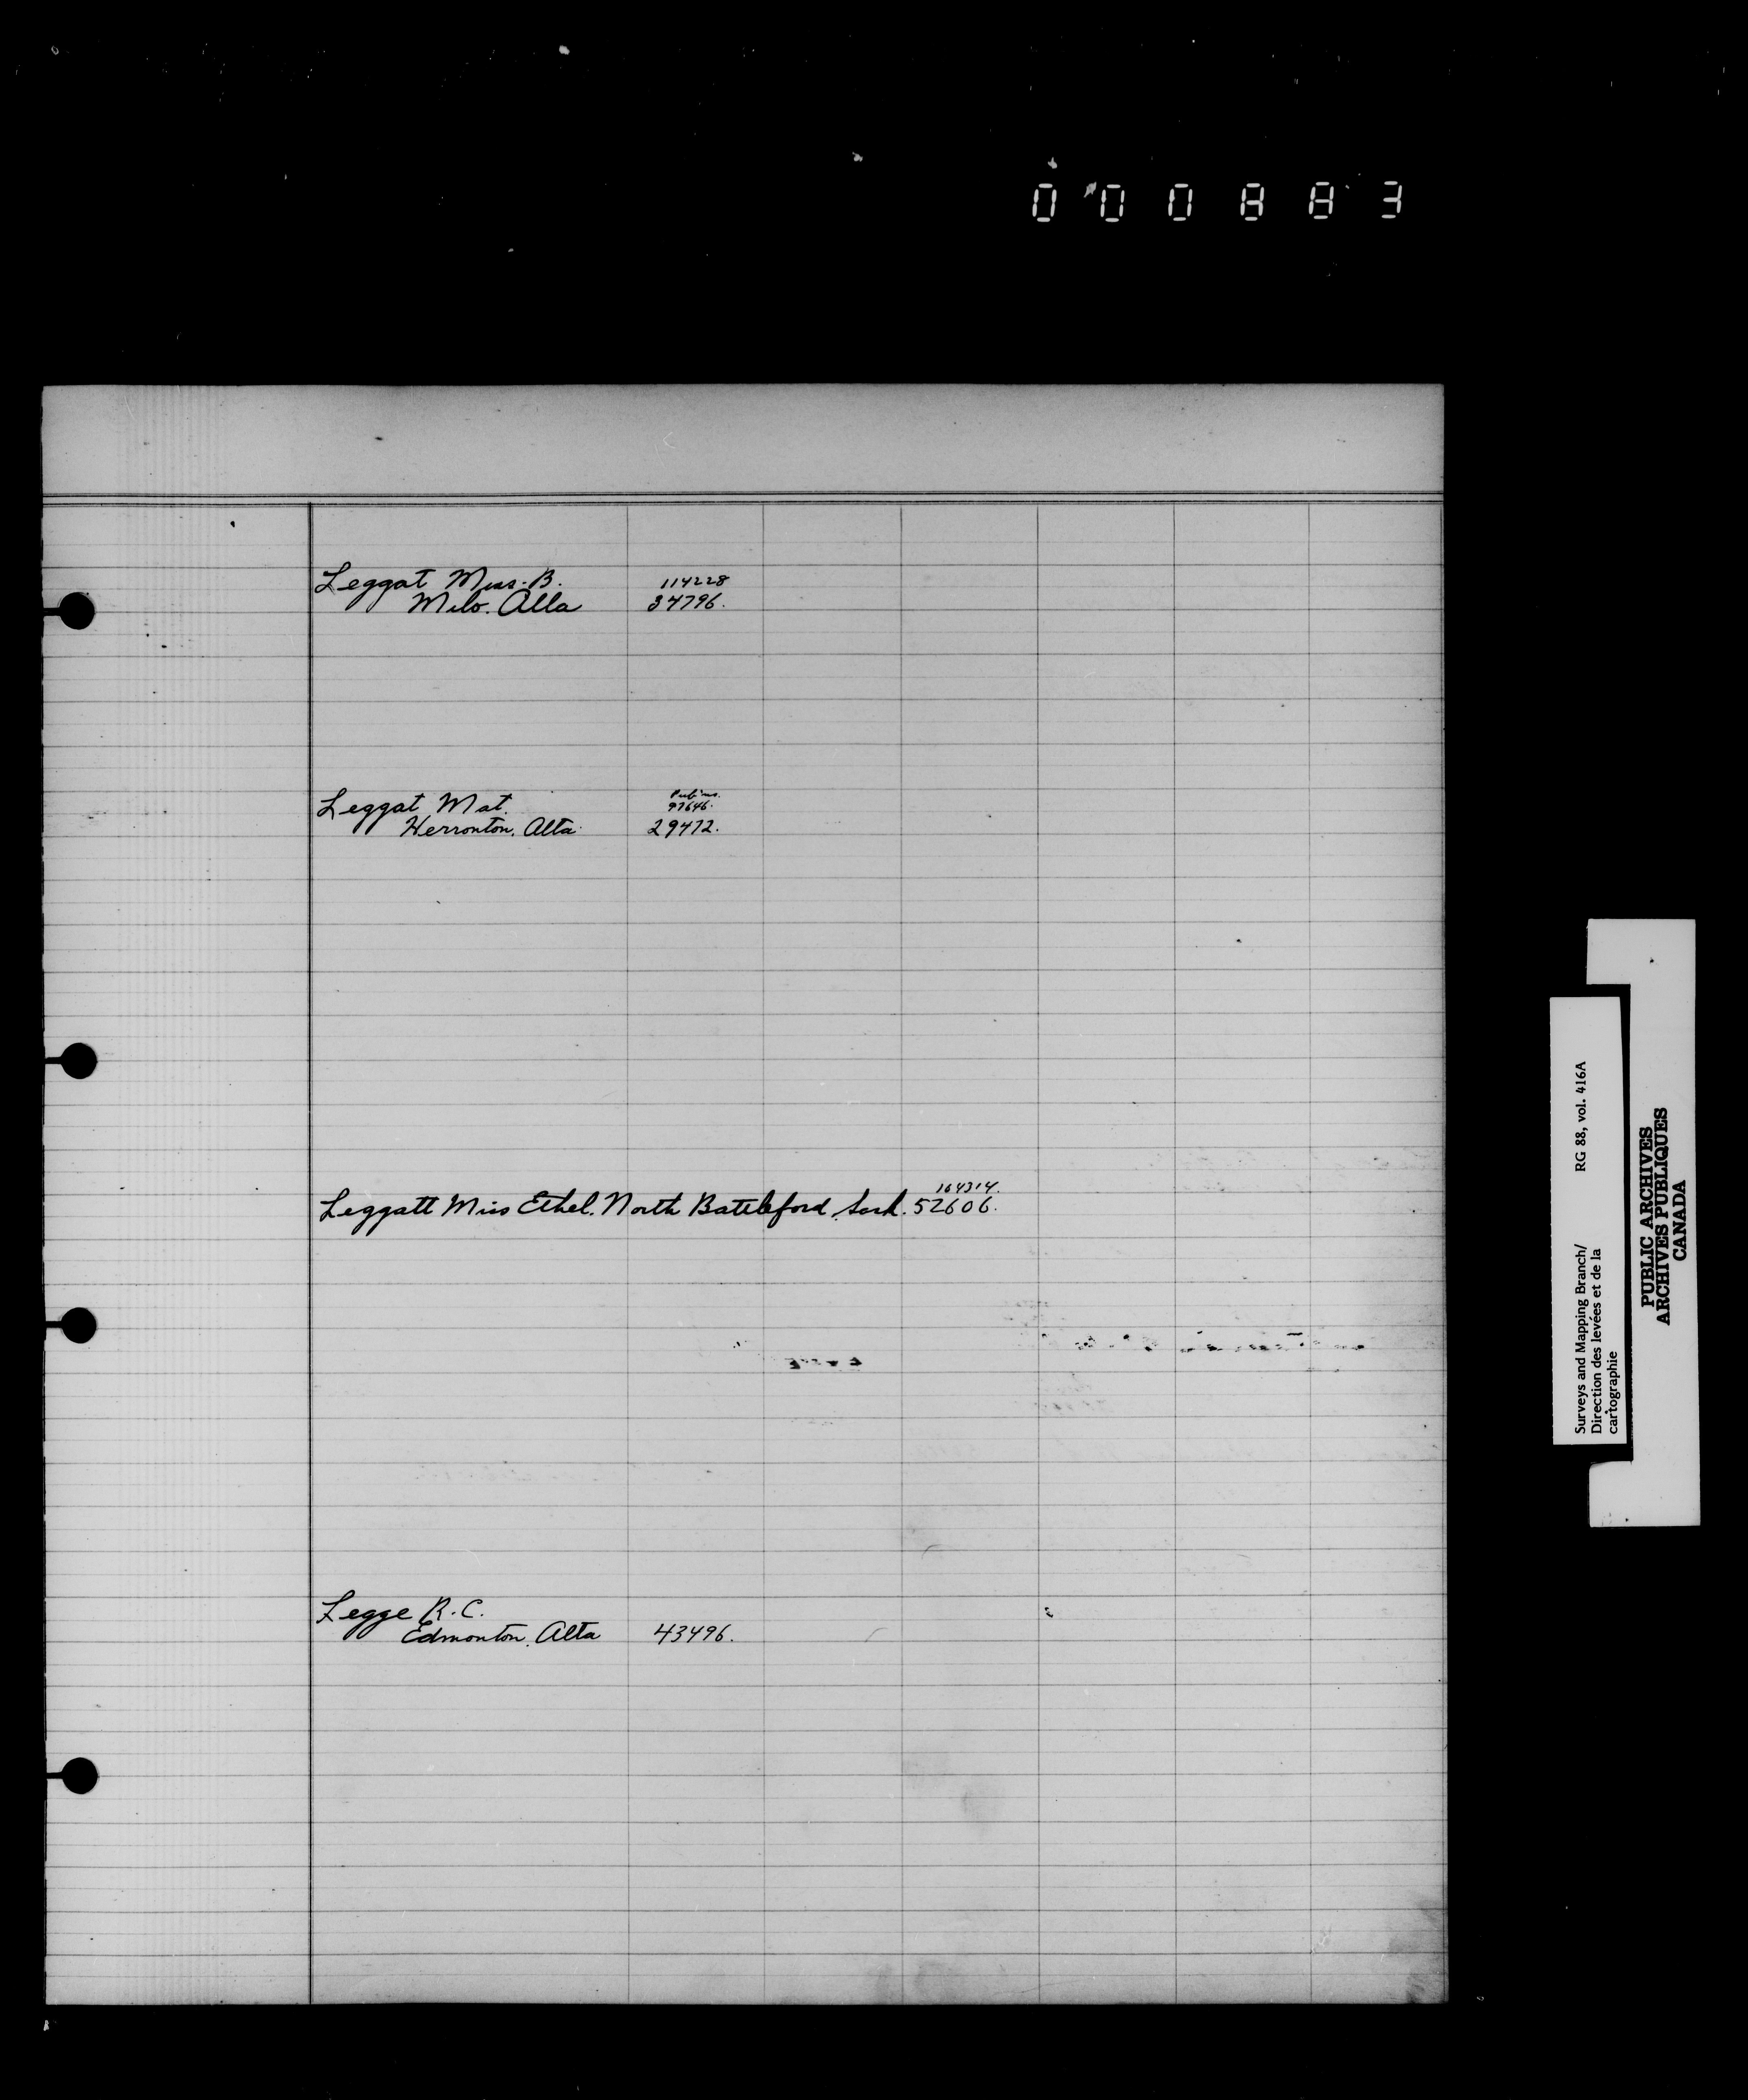 000883
Leggat Miss. B. 114228
Milo. Alta 34796.
Leggat Mat. 97646.
Herronton. Alta. 29472.
164314.
Leggatt Miss Ethel. North Battleford. Sask. 52606.
Legge R. C.
Edmonton. Alta 43496.
Surveys and Mapping Branch/ RG 88, vol. 416A
Direction des levées et de la
cartographie
PUBLIC ARCHIVES
ARCHIVES PUBLIQUES
CANADA